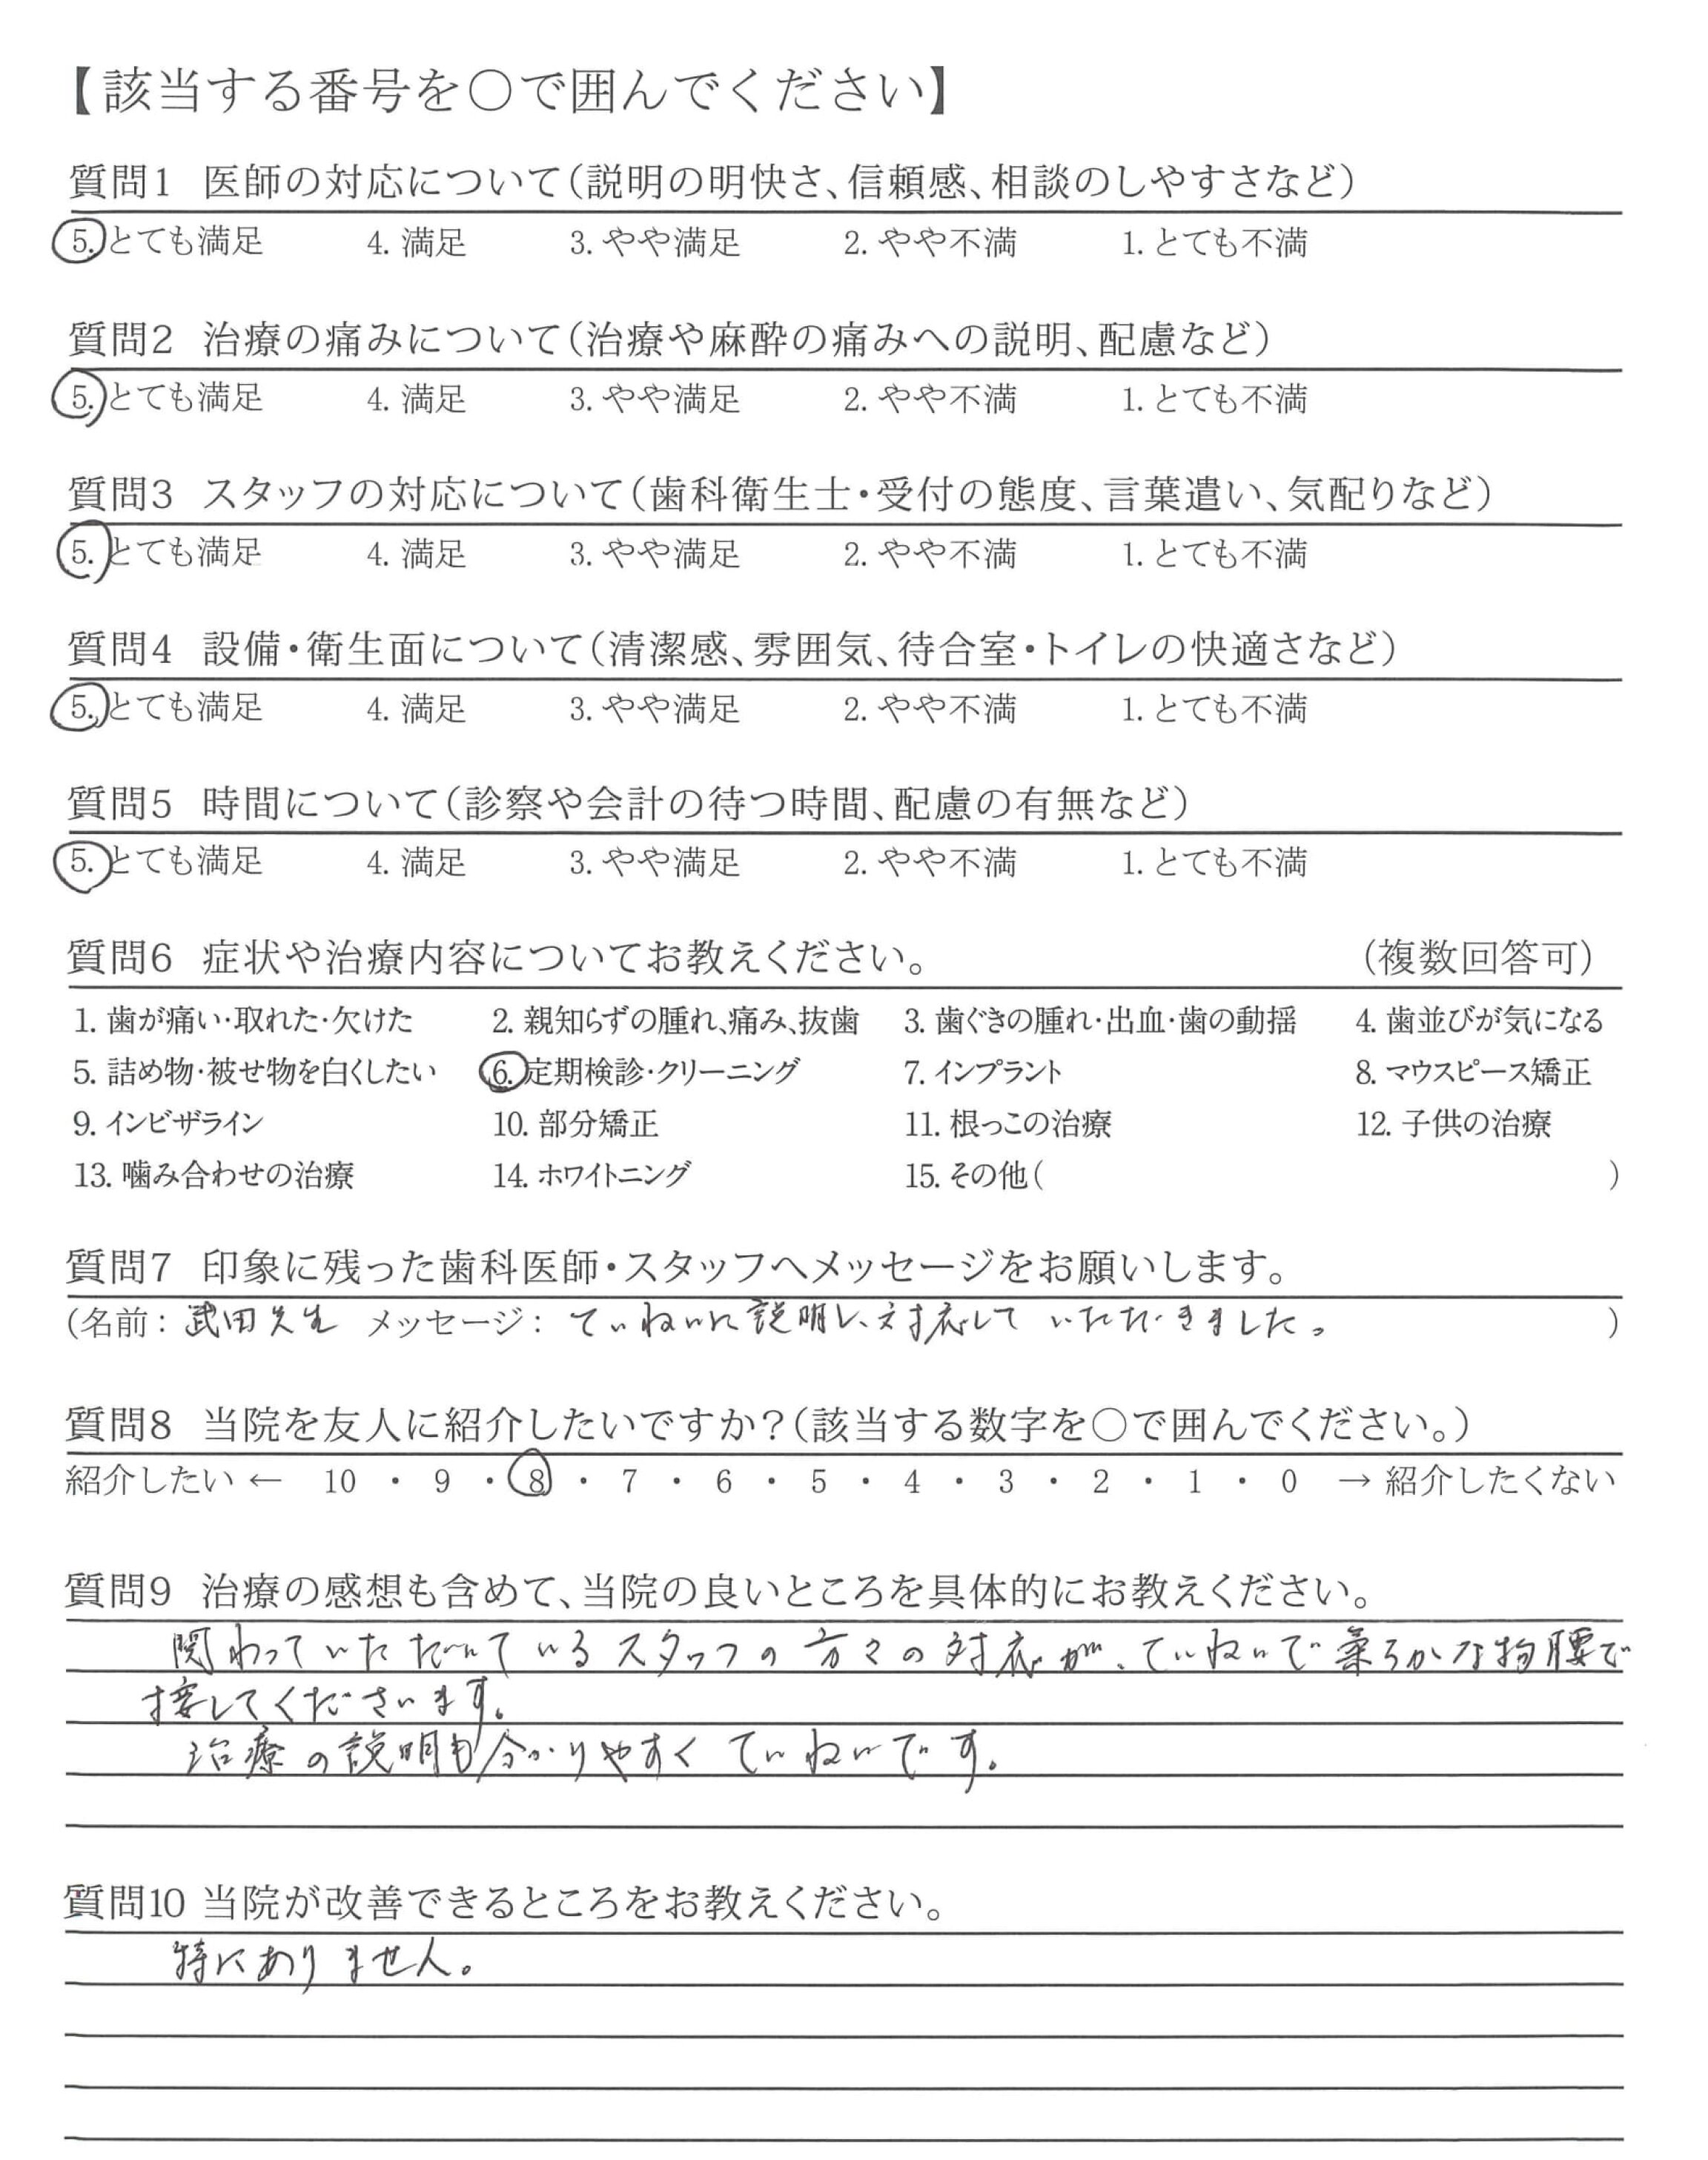 【該当する番号を○で囲んでください】
質問1 医師の対応について(説明の明快さ、信頼感、相談のしやすさなど)
5. とても満足 4. 満足 3. やや満足 2. やや不満 1. とても不満
質問2 治療の痛みについて(治療や麻酔の痛みへの説明、配慮など)
5. とても満足 4. 満足 3. やや満足 2. やや不満 1. とても不満
質問3 スタッフの対応について(歯科衛生士・受付の態度、言葉遣い、気配りなど)
5. とても満足 4. 満足 3. やや満足 2. やや不満 1. とても不満
質問4 設備・衛生面について(清潔感、雰囲気、待合室・トイレの快適さなど)
5. とても満足 4. 満足 3. やや満足 2. やや不満 1. とても不満
質問5 時間について(診察や会計の待つ時間、配慮の有無など)
5. とても満足 4. 満足 3. やや満足 2. やや不満 1. とても不満
質問6 症状や治療内容についてお教えください。 (複数回答可)
1. 歯が痛い・取れた・欠けた 2. 親知らずの腫れ、痛み、抜歯 3. 歯ぐきの腫れ・出血・歯の動揺 4. 歯並びが気になる
5. 詰め物・被せ物を白くしたい 6. 定期検診・クリーニング 7. インプラント 8. マウスピース矯正
9. インビザライン 10. 部分矯正 11. 根っこの治療 12. 子供の治療
13. 噛み合わせの治療 14. ホワイトニング 15. その他( )
質問7 印象に残った歯科医師・スタッフへメッセージをお願いします。
(名前: 武田先生 メッセージ: ていねいに説明し、対応して いただきました。 )
質問8 当院を友人に紹介したいですか?(該当する数字を○で囲んでください。)
紹介したい ← 10 ・ 9 ・ 8 ・ 7 ・ 6 ・ 5 ・ 4 ・ 3 ・ 2 ・ 1 ・ 0 → 紹介したくない
質問9 治療の感想も含めて、当院の良いところを具体的にお教えください。
関わっていただいているスタッフの方々の対応が、ていねいで柔らかな物腰で
接してくださいます。
治療の説明も分かりやすくていねいです。
質問10 当院が改善できるところをお教えください。
特にありません。